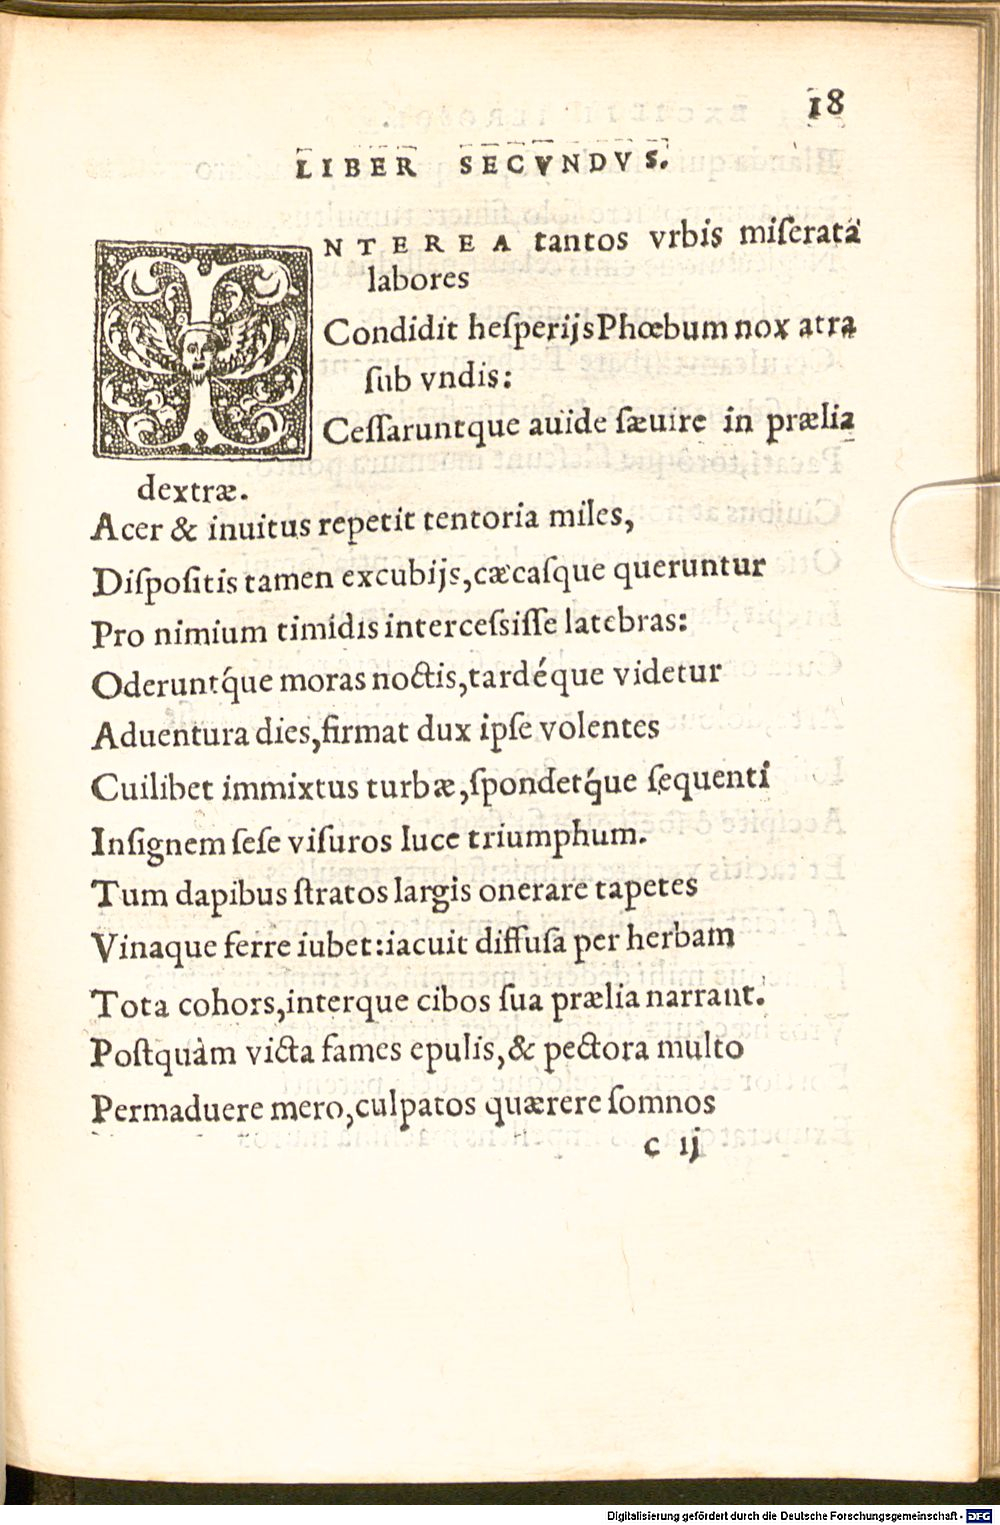 18
LIBER SECVNDVS.
INTEREA tantos vrbis miſerata
labores
Condidit heſperijs Phœbum nox atra
ſub vndis:
Ceſſaruntque auide ſæuire in prælia
dextræ.
Acer & inuitus repetit tentoria miles,
Diſpoſitis tamen excubijs, cæcaſque queruntur
Pro nimium timidis interceſsiſſe latebras:
Oderuntq́ue moras noctis, tardéque videtur
Aduentura dies, firmat dux ipſe volentes
Cuilibet immixtus turbæ, ſpondetq́ue ſequenti
Inſignem ſeſe viſuros luce triumphum.
Tum dapibus ſtratos largis onerare tapetes
Vinaque ferre iubet: iacuit diffuſa per herbam
Tota cohors, interque cibos ſua prælia narrant.
Poſtquàm victa fames epulis, & pectora multo
Permaduere mero, culpatos quærere ſomnos
c ij
Digitalisierung gefördert durch die Deutsche Forschungsgemeinschaft - DFG